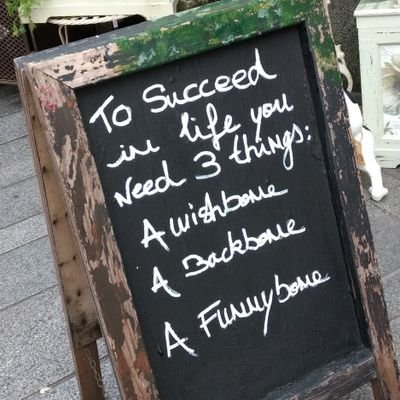 To Succeed
in life you
Need 3 things:
A wishbone
A Backbone
A Funnybone